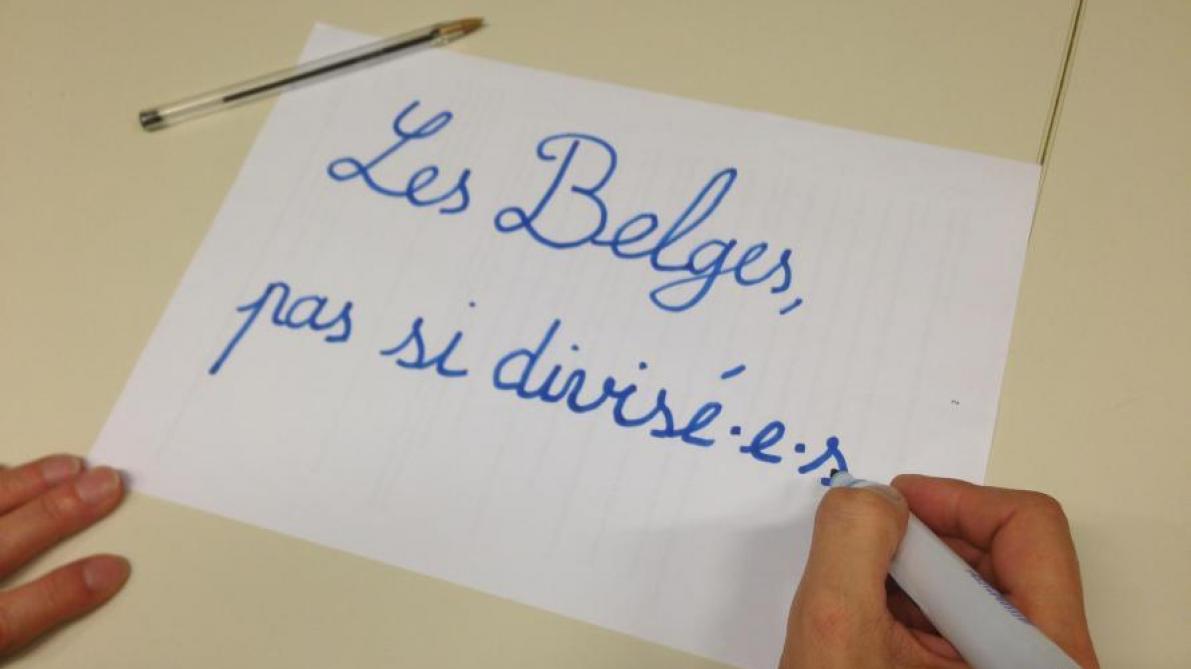 Les Belges,
pas si divisé·e·s